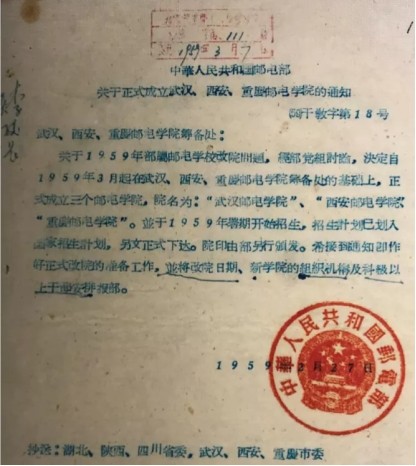 111
1959 3 7
中華人民共和国邮电部
关于正式成立武汉、西安、重慶邮电学院的通知
干教字第18号
武汉、西安、重慶邮电学院筹备处:
关于1959年部属邮电学校改院问题,經部党組討論,决定自
1959年3月起在武汉、西安、重慶邮电学院筹备处的基础上,正
式成立三个邮电学院,院名为:“武汉邮电学院”、“西安邮电学院”、
“重慶邮电学院”。並于1959年暑期开始招生,招生計划已划入
国家招生計划,另文正式下达。院印由部另行頒发。希接到通知即作
好正式改院的准备工作,並将改院日期、新学院的組織机構及科級以
上干部安排报部。
1959 2 27日
中華人民共和國郵電部
抄送:湖北、陝西、四川省委,武汉、西安、重慶市委